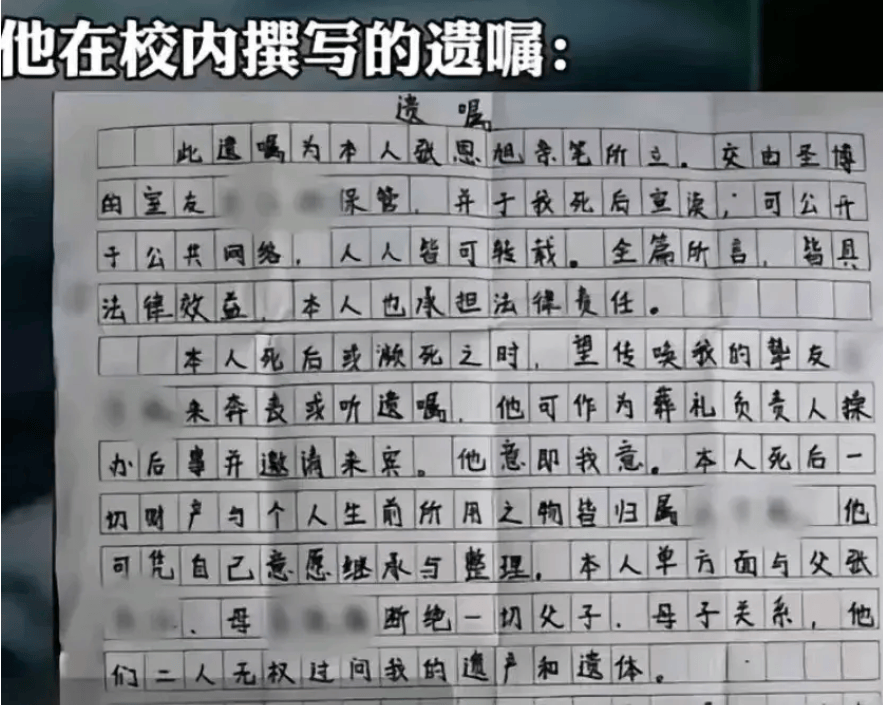 他在校内撰写的遗嘱：
遗嘱
此遗嘱为本人张恩旭亲笔所立。交由圣博
的室友 保管，并于我死后宣读，可公开
于公共网络，人人皆可转载。全篇所言，皆具
法律效益，本人也承担法律责任。
本人死后或濒死之时，望传唤我的挚友
来奔丧或听遗嘱，他可作为葬礼负责人操
办后事并邀请来宾。他意即我意。本人死后一
切财产与个人生前所用之物皆归属 他
可凭自己意愿继承与整理。本人单方面与父张
、母 断绝一切父子、母子关系，他
们二人无权过问我的遗产和遗体。